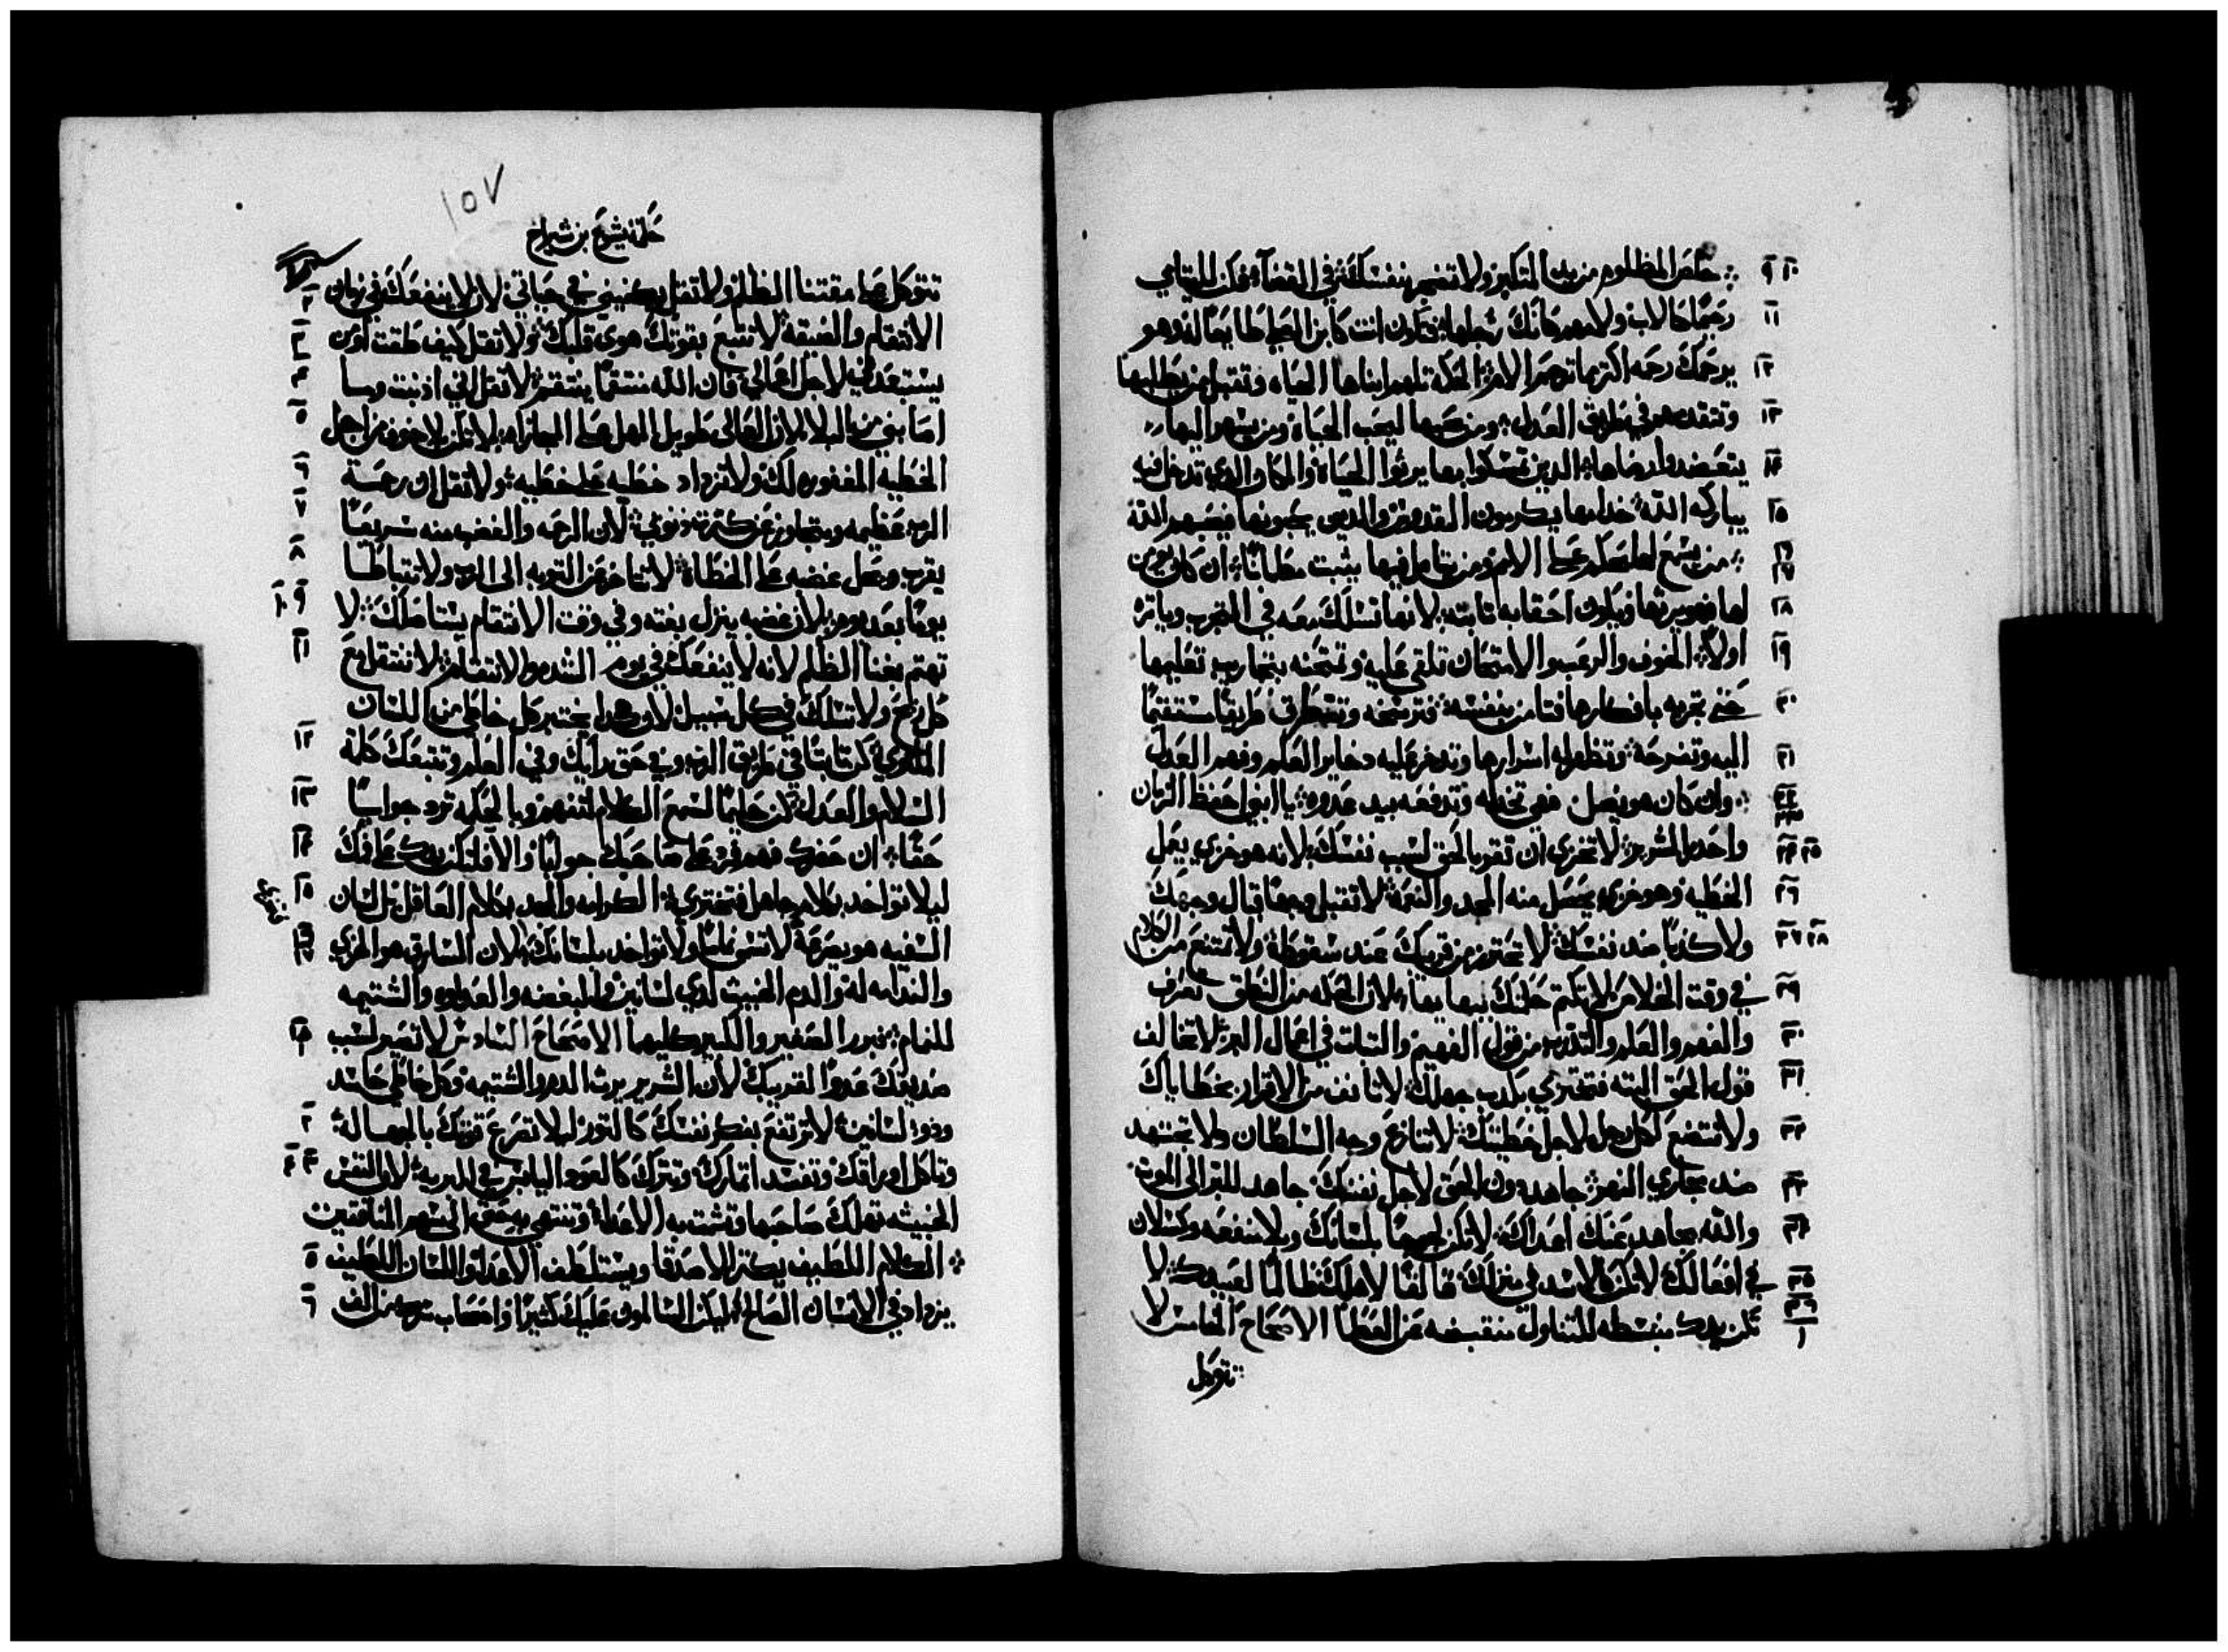 ٩ ١٠ خلص المظلوم من يد المتكبر ولا تضجر بنفسك في القضآ؛ فكن لليتامي
١١ رحيمًا كالاب ولامهم كانك رجلها؛ فتكون انت كابن العلي طايعًا له وهو
١٢ يرحمك رحمه اكثر ما ترحم الام؛ الحكمه تلهم ابناها الحياه وتقبل من يطلبها
١٣ وتتقدمهم في طريق العدل؛ ومن يحبها ليحب الحياة ومن يسهر اليها
١٤ يتعضدوا رضاها؛ الدين تمسكوا بها يرثوا الحياة والمكان الدي تدخل فيه
١٥ يباركه الله؛ خدامها يكرمون القدوس والدين يحبونها فيحبهم الله
١٦ ١٧ من يسمع لها يحكم على الامم ومن يتامل فيها يثبت مطمانًا؛ ان كان يومن
١٨ لها فهو يرثها ويكون احقابه ثابته؛ لانها تسلك معه في التجرب وياتره
١٩ اولاً؛ الخوف والرعب والامتحان تلقي عليه وتمتحنه بتجارب تعليمها
٢٠ حتى تجربه بافكارها فتامن بنفسه؛ فترسخه وتتطرق طريقًا مستقيمًا
٢١ اليه وتفرحه؛ وتظهر له اسرارها وتدخر عليه دخاير العلم وفهم العدل
٢٢ ٢٣ وان كان هو يضل فهي تخدله وتدفعه بيد عدوه؛ يا ابني احفظ الزمان
٢٤ ٢٥ واحدر الشرير؛ لا تخزي ان تقول بالحق لسبب نفسك؛ لانه هو خزي يعمل
٢٦ الخطيه وهو خزي يحصل منه المجد والنعمة؛ لا تقتبل وجهًا قبال وجهك
٢٧ ٢٨ ولا كذبًا ضد نفسك؛ لا تحترم من قريبك عند سقوطة؛ ولا تمتنع من الكلام
٢٩ في وقت الخلاص؛ لا تكتم حكمتك ببهايها؛ لان الحكمه من النطق تعرف
٣٠ والفهم والعلم والتدرب من قول الفهيم والتبات في اعمال البر؛ لا تخالف
٣١ قول الحق البته فتختزي بكدب جهلك؛ لا تانف من الاقرار بخطاياك
٣٢ ولا تتضع لكل رجل لاجل خطيتك؛ لا تنازع وجه السلطان ولا تجتهد
٣٣ ضد مجاري النهر؛ جاهد دون الحق لاجل نفسك؛ جاهد للبر الى الموت
٣٤ والله يجاهد عنك اعداك؛ لا تكن لهجًا بلسانك وبلا منفعه وكسلان
٣٥ في افعالك؛ لا تكن كالاسد في منزلك؛ قالقًا لاهلك ظالمًا لعبيدك؛ لا
٣٦ ١ تكن يدك منبسطه للتناول منقبضه عن العطا؛ الاصحاح الخامس لا
تتوكل
١٥٧
حكمة يشوع بن شيراخ
تتوكل على مقتنا الظلم ولا تقل يكفيني في حياتي؛ لان لا ينفعك في زمان
٢ الانتقام والضيقه؛ لا تتبع بقوتك هوى قلبك؛ ولا تقل كيف طقت او من
٣ يستبعدني لاجل اعمالي فان الله منتقمًا ينتقم؛ لا تقل اني ادنبت وما
٤ ٥ اصابني من البلا لان العالى طويل المهل على المجازاه؛ لا تكن بلا خوف من اجل
٦ الخطيه المغفوره لك ولا تزداد خطيه على خطيه؛ ولا تقل ان رحمة
٧ الرب عظيمه ويتجاوز عن كثرة دنوبي؛ لان الرحمه والغضب منه سريعًا
٨ يقرب ويحل غضبه على الخطاة؛ لا تتاخر عن التوبه الى الرب ولا تتباطا
٩ ١٠ يومًا بعد يوم؛ لان غضبه ينزل بغته وفي وقت الانتقام يستاصلك؛ لا
١١ تهتم بغنا الظلم لانه لا ينفعك في يوم الشده والانتقام؛ لا تنتقل مع
كل ريح ولا تسلك في كل سبيل؛ لان هكدا يختبر كل خاطي من اللسان
١٢ الملتوي؛ كن تابتًا في طريق الرب وفي حق رايك وفي العلم وتتبعك كلمة
١٣ السلام والعدل؛ كن حليمًا لسمع الكلام لتفهم وبالحكمه ترد جوابًا
١٤ حقًا؛ ان حضرك فهم فرد على صاحبك جوابًا والا فلتكن يدك على فمك
١٥ ليلا تواخد بكلام جاهل فتختزي؛ الكرامه والمجد بكلام العاقل بل لسان
١٦ ١٧ السفيه هو يصرعه؛ لا تسمى نمامًا ولا تواخد بلسانك؛ لان السارق هو الخزي
والندامه له والدم الخبيث لدي لسانين؛ والبغضه والعداوه والشتيمه
١٨ ١ للنمام؛ فبرر الصغير والكبير كليهما الاصحاح السادس لا تصير لسبب
صديقك عدوًا لقريبك؛ لان الشرير يرث الدم والشتيمه وكل خاطي حاسد
٢ ودو لسانين؛ لا ترتفع بفكر نفسك كالتور ليلا تصرع قوتك بالجهالة؛
٣ ٤ وتاكل اوراقك وتفسد اتمارك وتترك كالعود اليابس في البريه؛ لان النفس
الخبيثه تهلك صاحبها وتشمت به الاعدا وتنتهي به حتى الى سهم المنافقين
٥ الكلام اللطيف يكتر الاصدقا ويستلطف الاعدا واللسان اللطيف
٦ يزداد في الانسان الصالح؛ ليكن السالمون عليك كثيرًا واصحاب سرك من الف